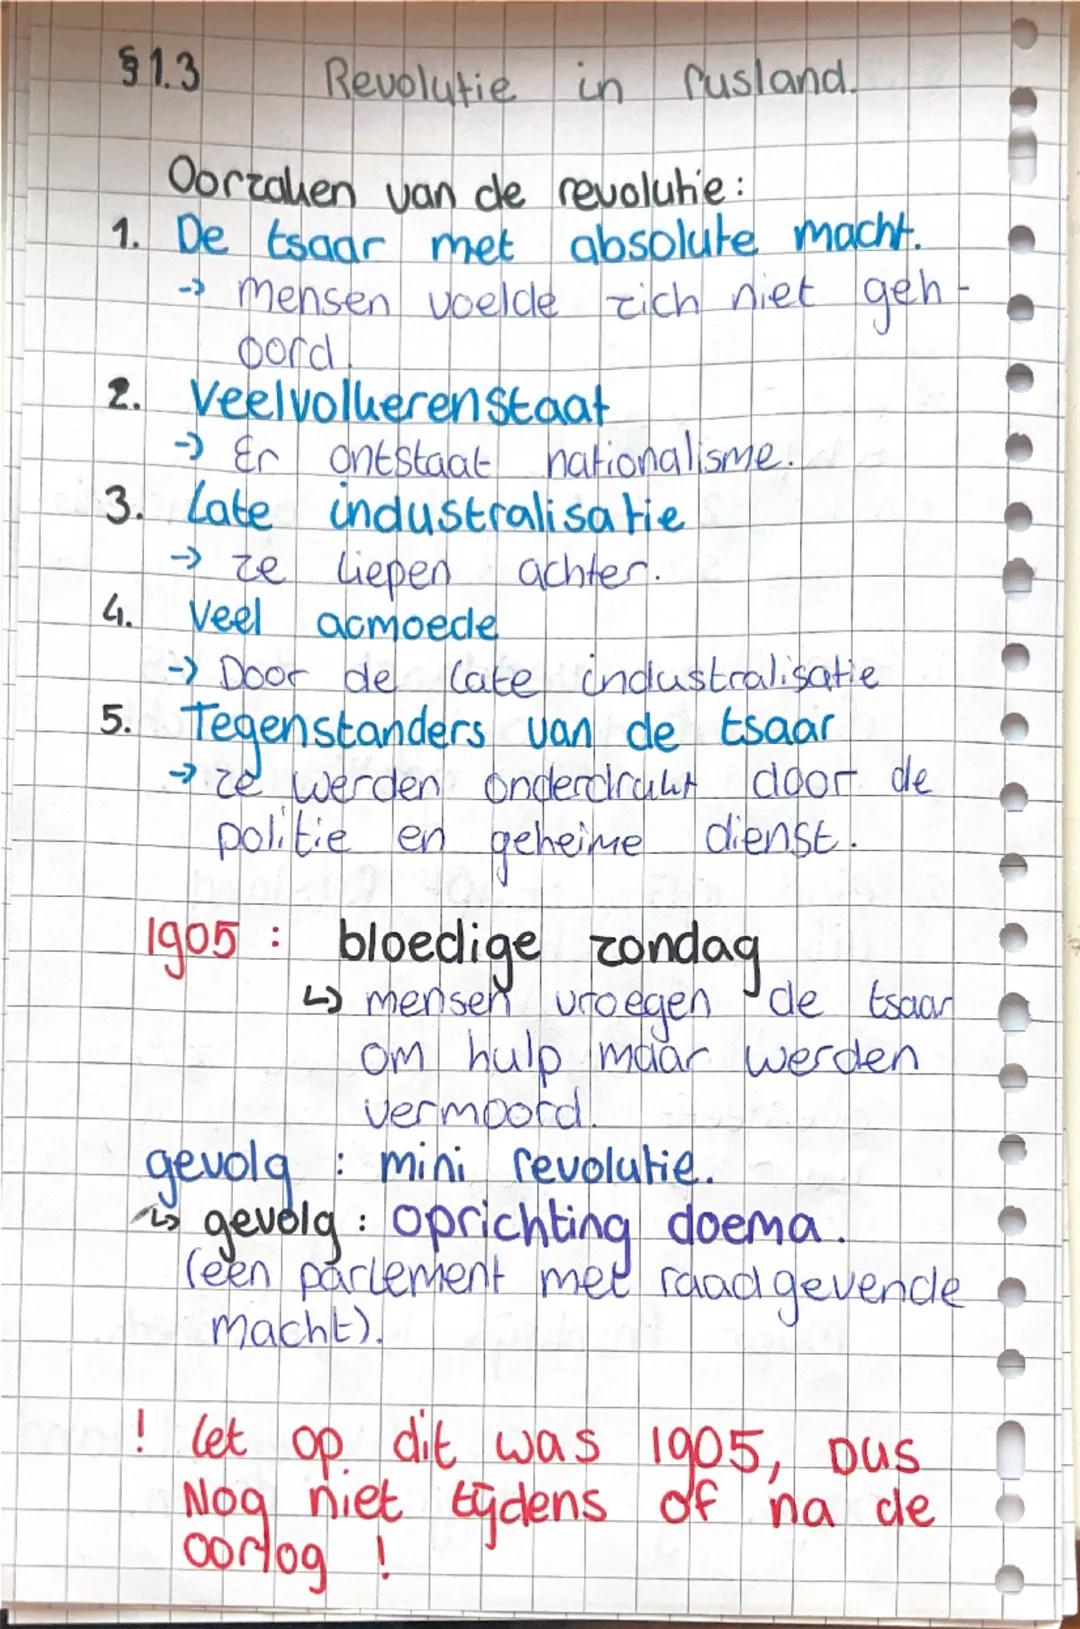 §1.3 Revolutie in Rusland.
Oorzaken van de revolutie:
1. De tsaar met absolute macht.
-> mensen voelde zich niet geh-
oord.
2. Veelvolkerenstaat
-> Er ontstaat nationalisme.
3. Late industralisatie
-> ze liepen achter.
4. Veel armoede
-> Door de late industralisatie
5. Tegenstanders van de tsaar
-> ze werden onderdrukt door de
politie en geheime dienst.
1905 : bloedige zondag
↳ mensen vroegen de tsaar
om hulp maar werden
vermoord.
gevolg : mini revolutie.
↳ gevolg : oprichting doema.
(een parlement met raadgevende
macht).
! let op dit was 1905, Dus
Nog niet tijdens of na de
oorlog !